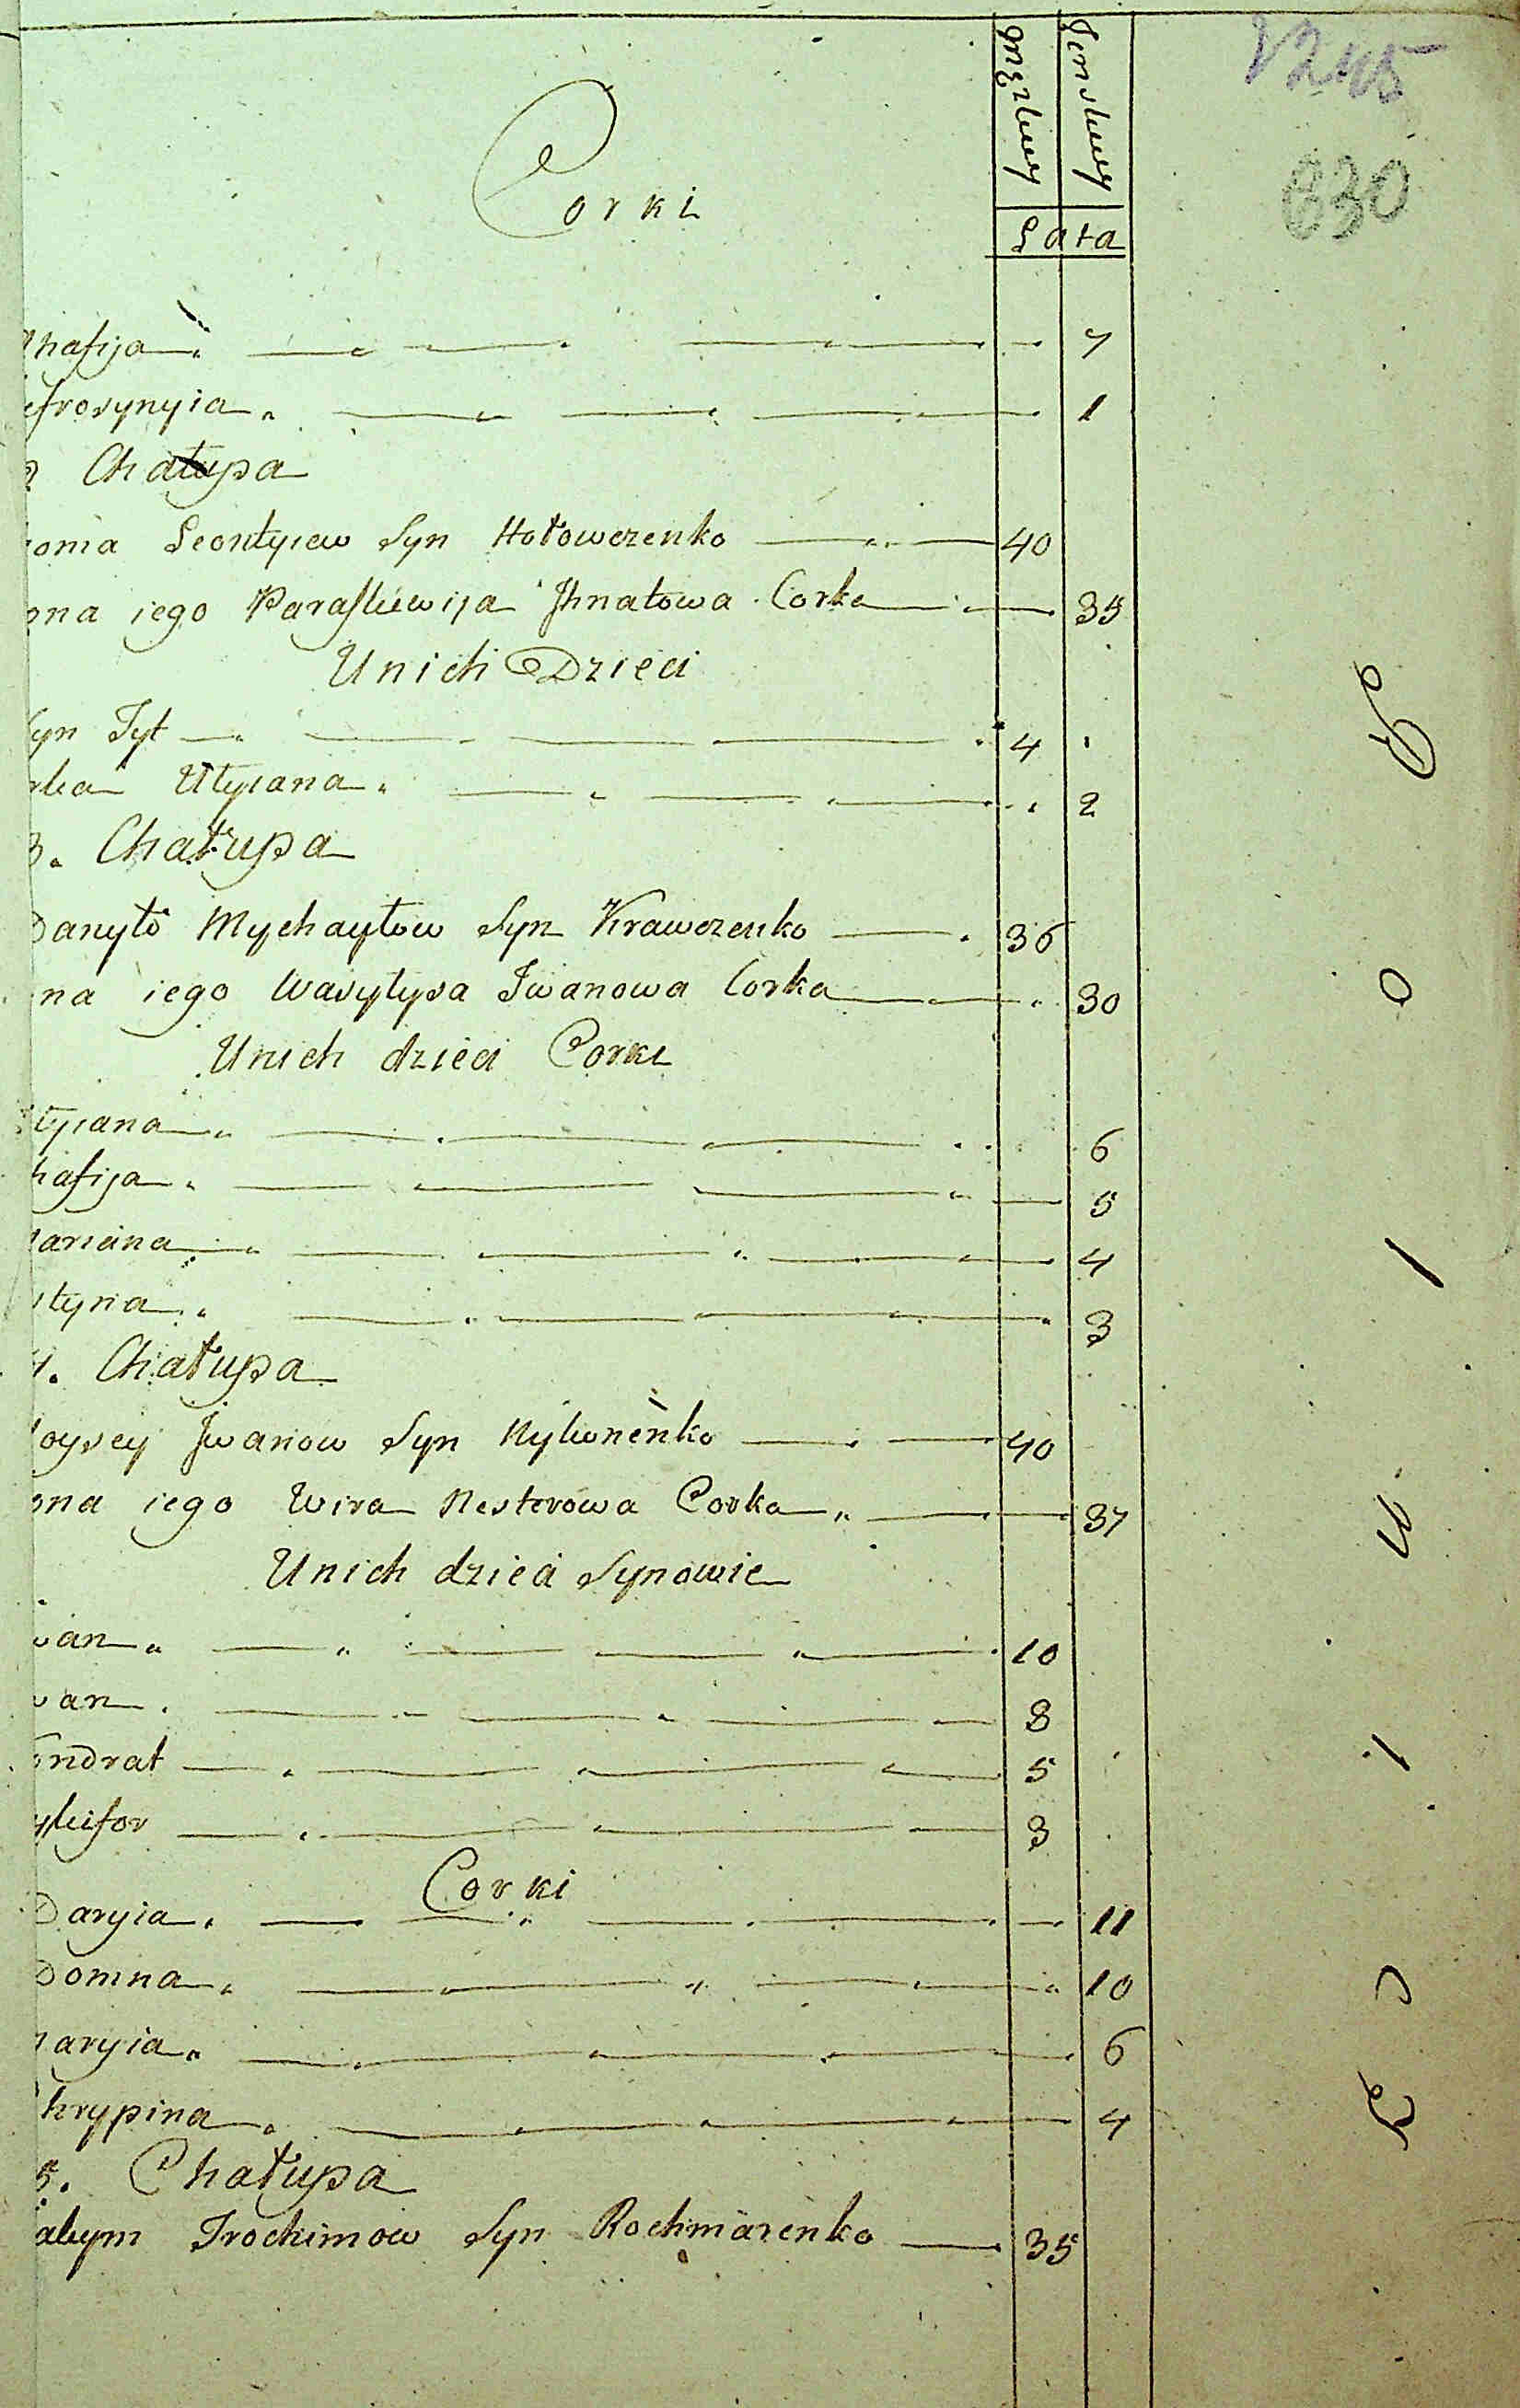 Męzkiey Zenskiey
1245
630
Corki
Lata
hafija 7
frosynyia 1
Chałupa
oma Leontyiew Syn Hołowczenko 40
ona iego Paraskiewija Ihnatowa Corka 35
Unich Dzieci
Syn Tyt 4
rka Ulyiana 2
3. Chałupa
Danyło Mychayłow Syn Krawczenko 36
na iego Wasylysa Iwanowa Corka 30
Unich dzieci Corki
lyiana 6
hafija 5
ariana 4
styna 3
4. Chałupa
oysey Iwanow Syn Nykonenko 40
ona iego Wira Nesterowa Corka 37
Unich dzieci Synowie
wan 10
wan 8
ondrat 5
ykifor 3
Corki
Daryia 11
Domna 10
aryia 6
hrypina 4
5. Chałupa
akym Trochimow Syn Rochmanenko 35